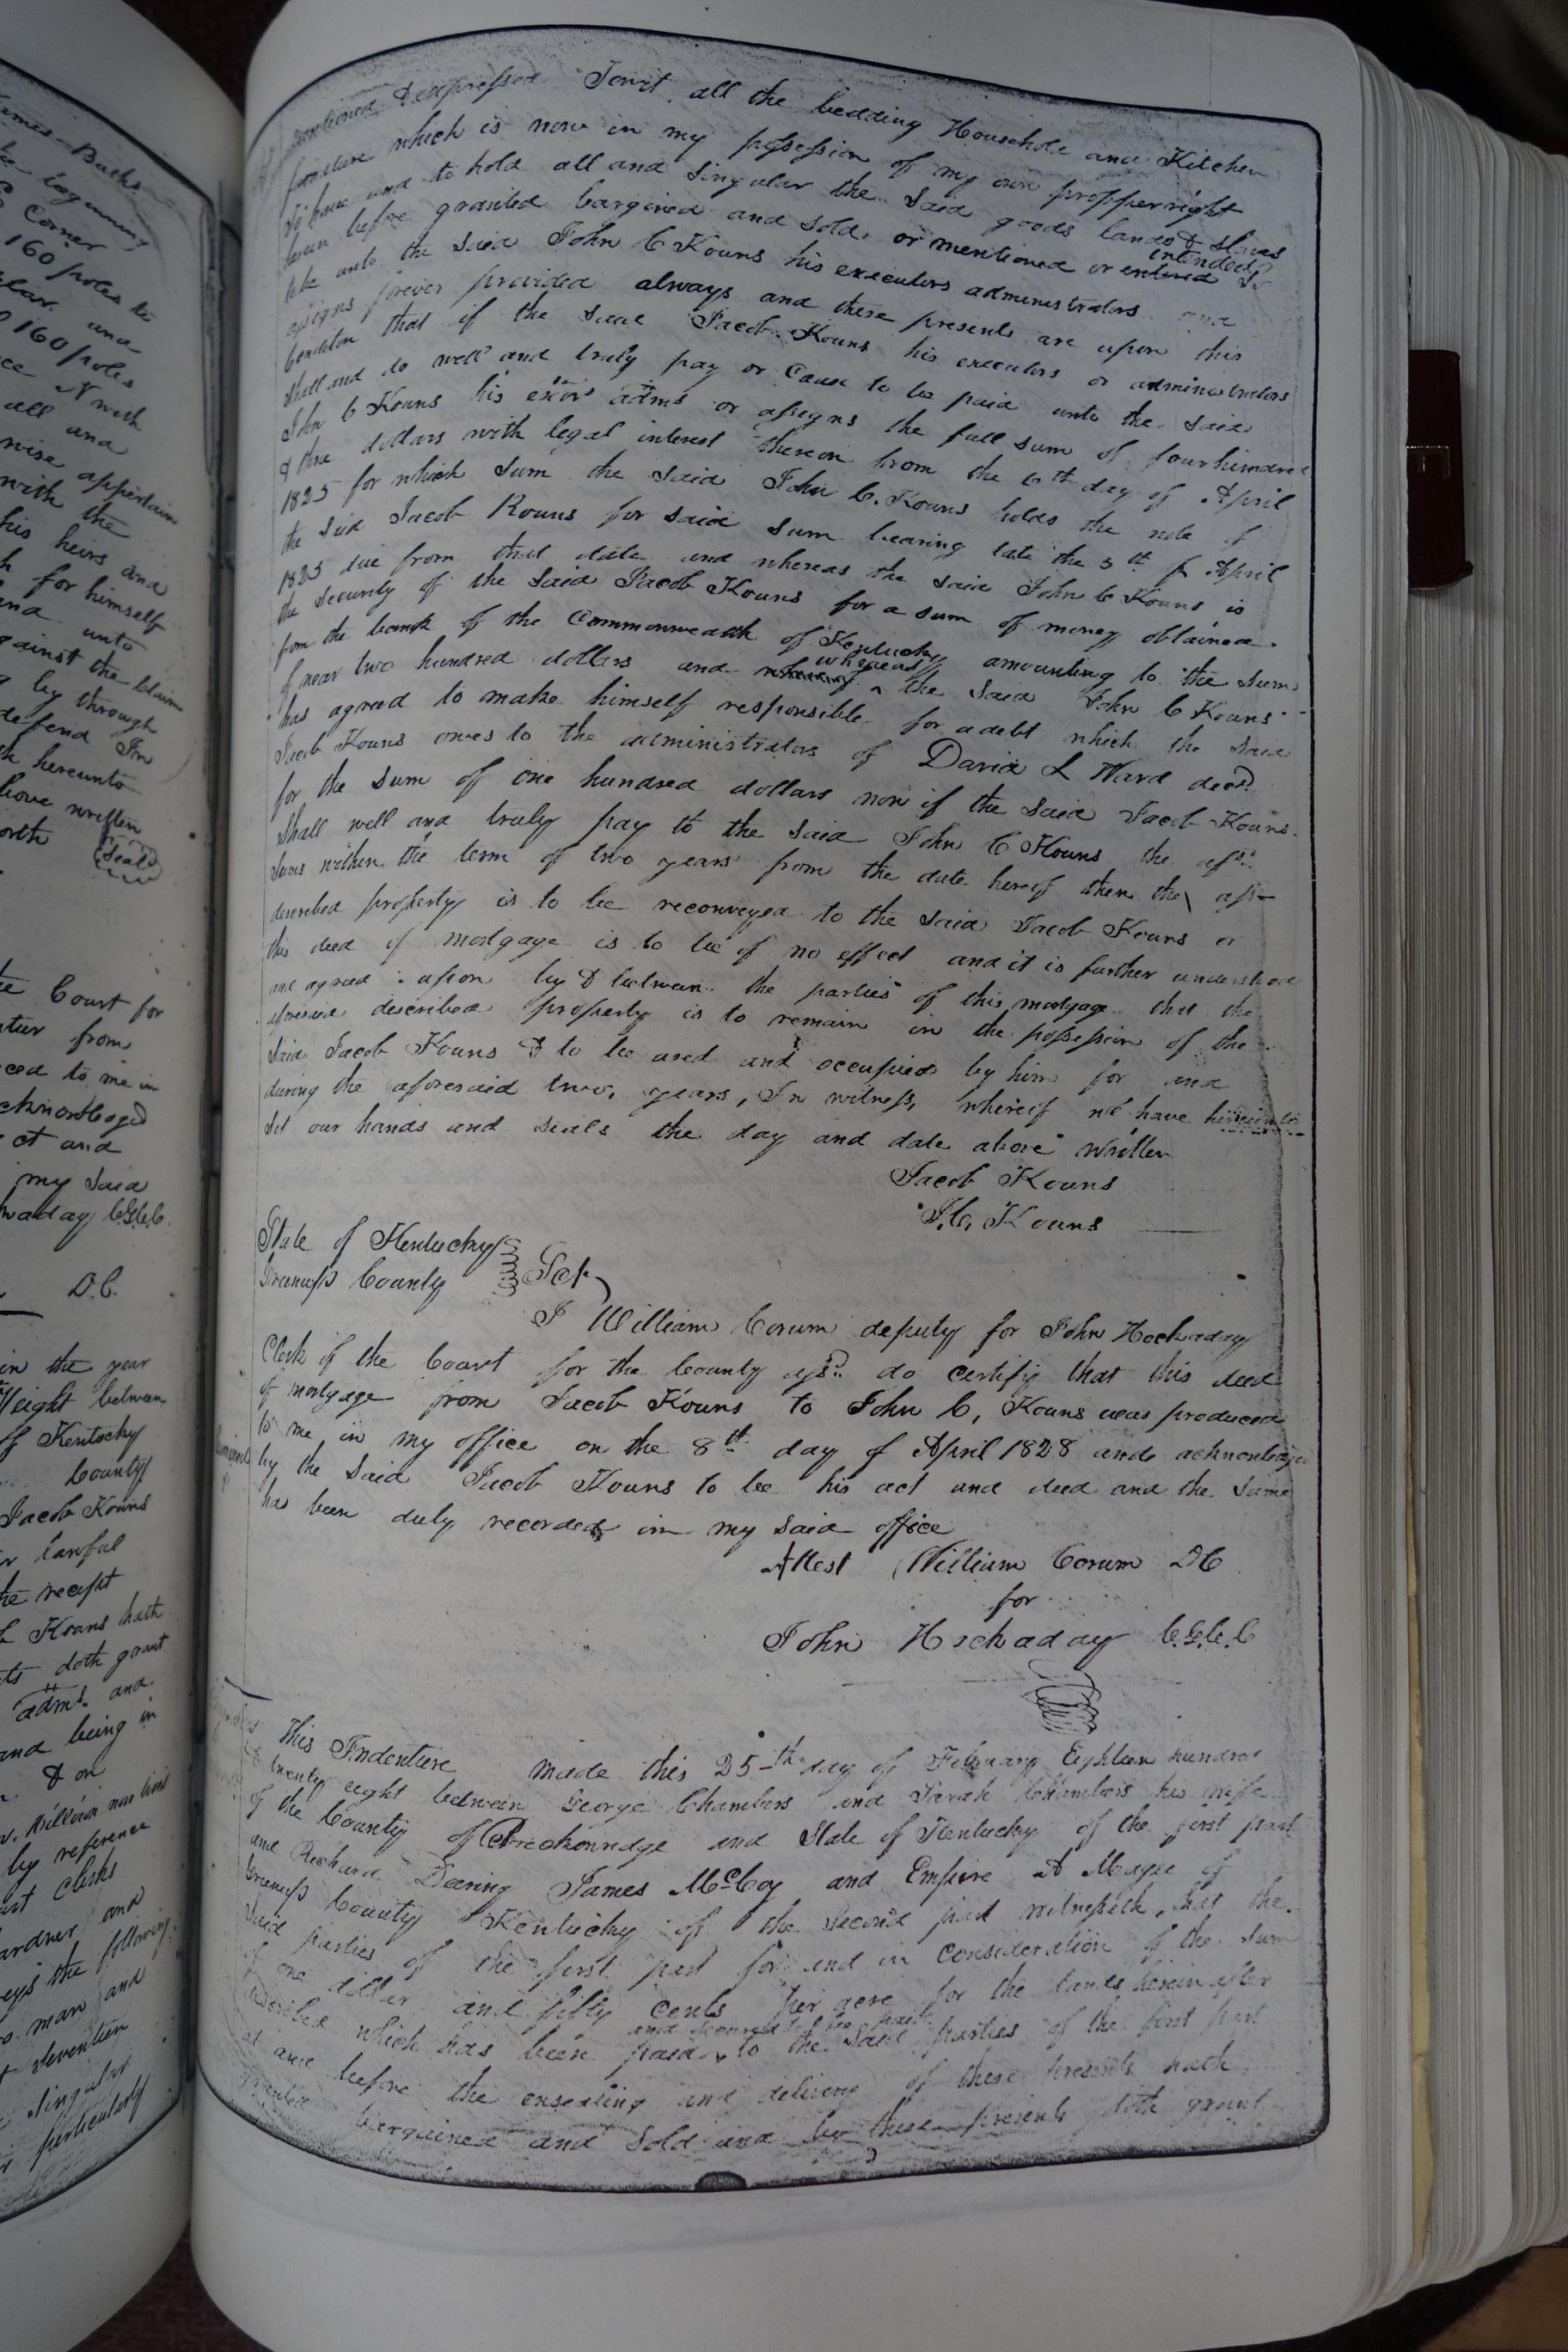 ames Bucks
the beginning
Corner
160 poles to
and
160 poles
ce N with
all and
wise appertain
with the
his heirs and
for himself
and unto
gainst the claim
by through
defend In
hereunto
bove written
orth (Seal)
te Court for
from
ced to me in
cknowleged
ct and
my Said
waday C.G.C.C.
D.C.
in the year
eight between
of Kentucky
County
Jacob Kouns
lawful
the receipt
Kouns hath
ts doth grant
adms. and
and being in
& on
by reference
Clerks
ardner and
eys the following
man and
Seventeen
Singular
particularly
mentioned & expressed Towit all the bedding Household and Kitchen
furniture which is now in my possession of my own propper right
To have and to hold all and Singular the Said goods lands & slaves
herein before granted bargined and Sold or mentioned or entered intended So
to be unto the Said John C Kouns his executors administrators and
assigns forever provided always and these presents are upon this
condition that if the Said Jacob Kouns his executors or administrators
Shall and do well and truly pay or Cause to be paid unto the Said
John C Kouns his exors adms or assigns the full sum of four hundred
& three dollars with legal interest thereon from the 6th day of April
1825 for which Sum the Said John C. Kouns holds the note of
the Sid Jacob Kouns for said Sum bearing date the 5th of April
1825 due from that date and whereas the said John C Kouns is
the Security of the Said Jacob Kouns for a sum of money obtained
from the bank of the Commonwealth of Kentucky amounting to the Sum
of near two hundred dollars and whereas the Said John C Kouns
has agreed to make himself responsible for a debt which the Said
Jacob Kouns owes to the administrators of David L Ward decd.
for the Sum of one hundred dollars now if the Said Jacob Kouns
Shall well and truly pay to the Said John C Kouns the afsd.
Sums within the term of two years from the date hereof then the afs
described property is to be reconveyed to the Said Jacob Kouns or
this deed of mortgage is to be of no effect and it is further understood
and agreed upon by & between the parties of this mortgage that the
aforesaid described property is to remain in the possession of the
Said Jacob Kouns & to be used and occupied by him for and
during the aforesaid two, years, In witness, whereof we have hereunto
Set our hands and Seals the day and date above written
Jacob Kouns
J. C. Kouns
State of Kentucky
Greenup County Sct
I William Corum deputy for John Hockaday
Clerk of the Court for the County afsd. do certify that this deed
of mortgage from Jacob Kouns to John C, Kouns was produced
to me in my office on the 8th day of April 1828 and acknowledged
by the Said Jacob Kouns to be his act and deed and the Same
has been duly recorded in my Said office
Attest William Corum DC
for
John Hockaday C.G.C.C
This Indenture made this 25th day of February Eighteen hundred
& twenty eight between George Chambers and Sarah Chambers his wife
of the County of Breckonridge and State of Kentucky of the first part
and Richard Deering James McCoy and Empire A Magee of
Greenup County Kentucky of the Second part witnesseth, that the
Said parties of the first part for and in consideration of the Sum
of one dollar and fifty cents per acre for the lands herein after
described which has been paid and secured to be paid to the Said parties of the first part
at and before the ensealing and delivery of these presents hath
granted bargained and Sold and by these presents doth grant